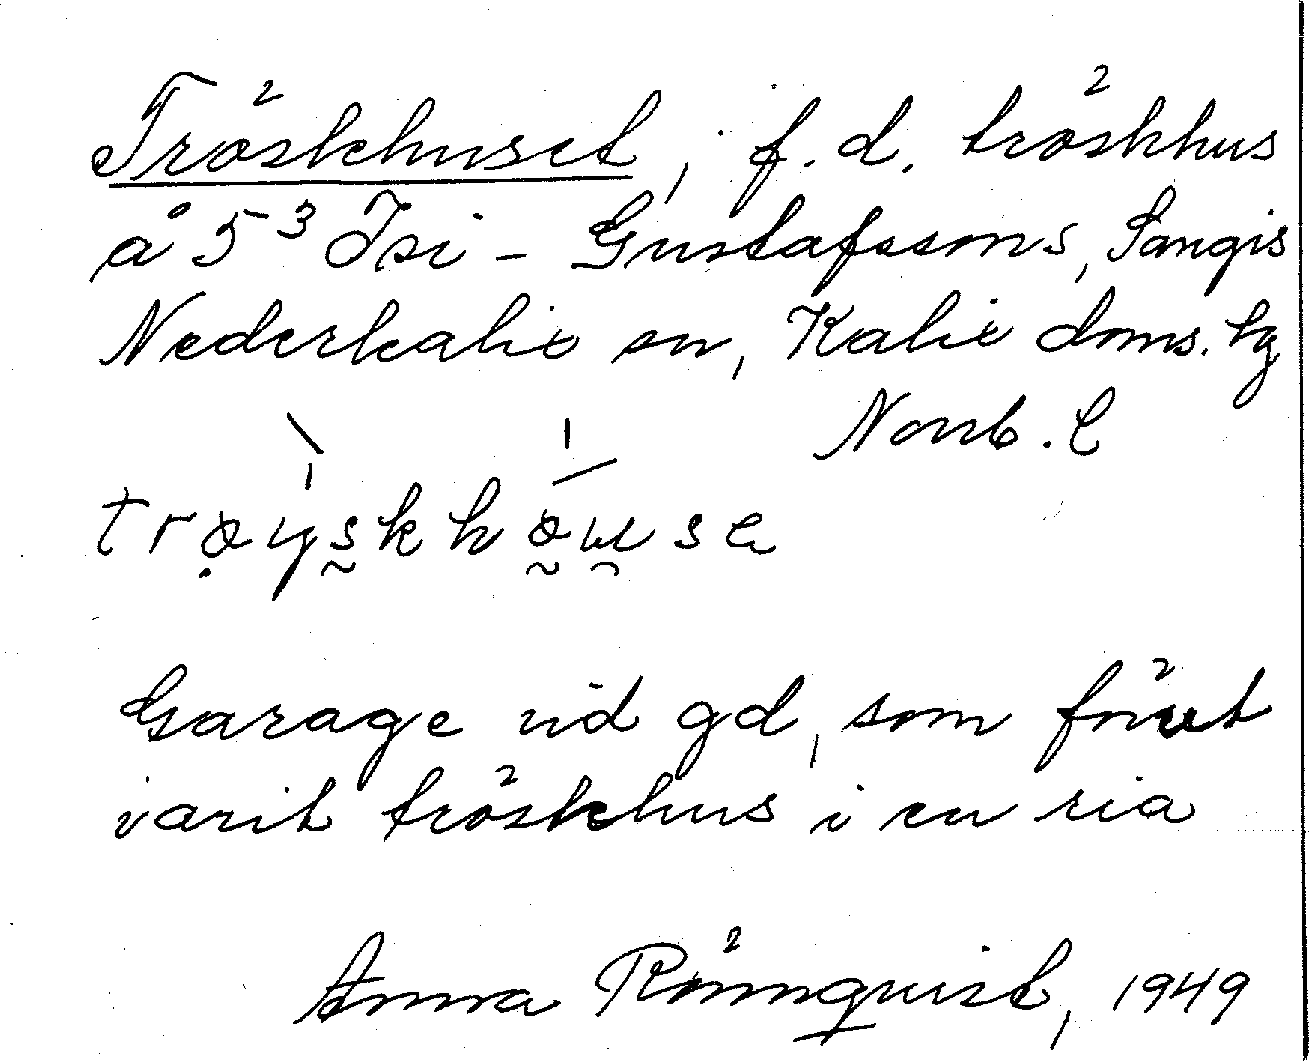 Tröskhuset, f.d. tröskhus
å 5³ Isi-Gustafssons, Sangis
Nederkalix sn, Kalix doms. lg
Norrb. l
trøyskhøuse
Garage vid gd, som förut
varit tröskhus i en ria
Anna Rönnquist, 1949